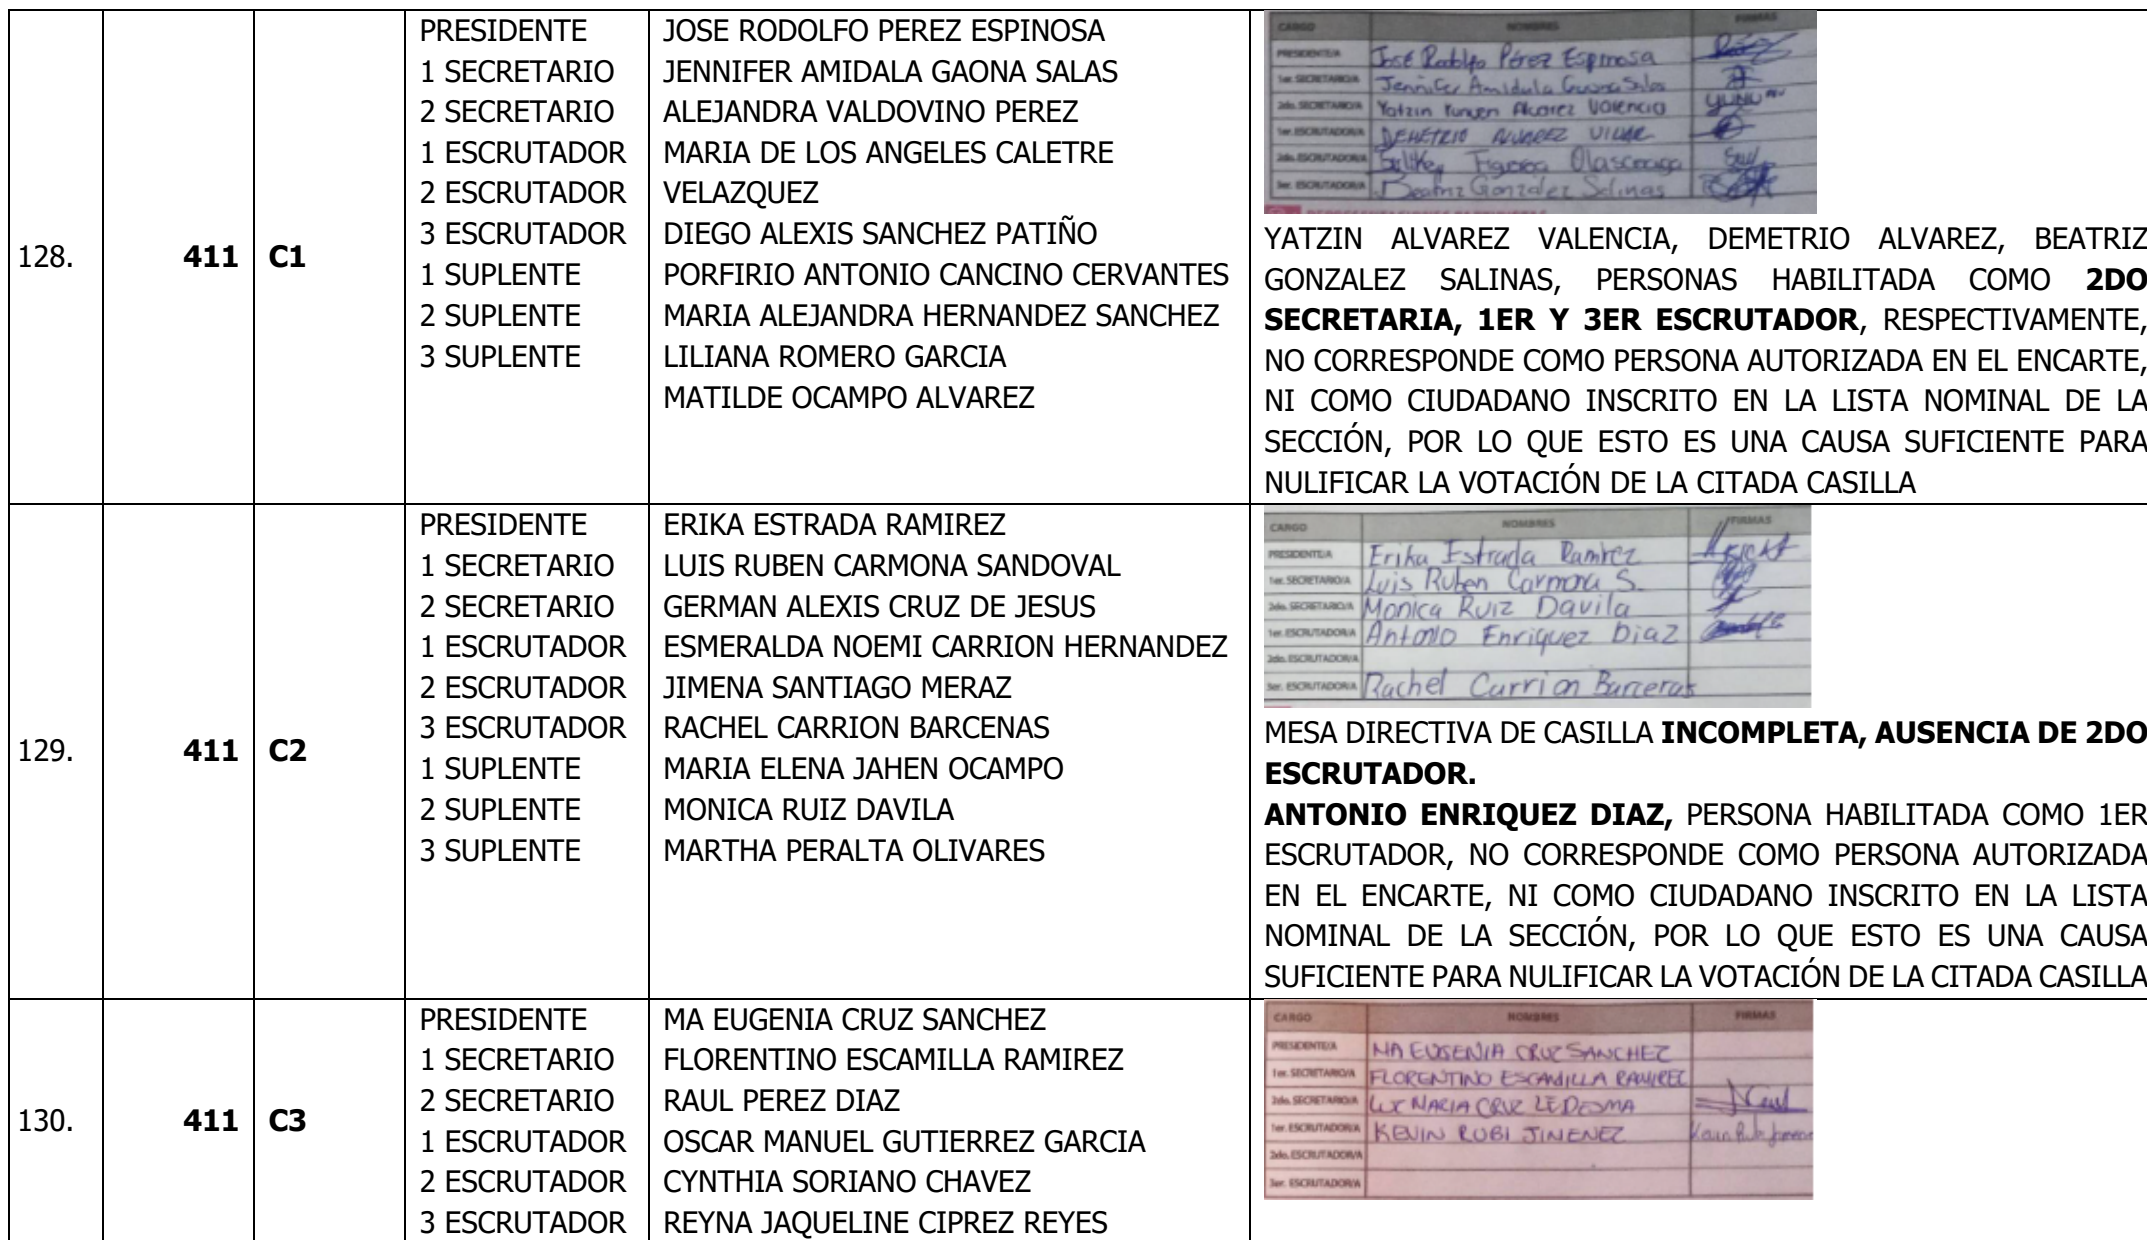 128.
411
C1
PRESIDENTE
1 SECRETARIO
2 SECRETARIO
1 ESCRUTADOR
2 ESCRUTADOR
3 ESCRUTADOR
1 SUPLENTE
2 SUPLENTE
3 SUPLENTE
JOSE RODOLFO PEREZ ESPINOSA
JENNIFER AMIDALA GAONA SALAS
ALEJANDRA VALDOVINO PEREZ
MARIA DE LOS ANGELES CALETRE
VELAZQUEZ
DIEGO ALEXIS SANCHEZ PATIÑO
PORFIRIO ANTONIO CANCINO CERVANTES
MARIA ALEJANDRA HERNANDEZ SANCHEZ
LILIANA ROMERO GARCIA
MATILDE OCAMPO ALVAREZ
CARGO NOMBRES FIRMAS
PRESIDENTE/A José Rodolfo Pérez Espinosa
1er. SECRETARIO/A Jennifer Amidala Gaona Salas
2do. SECRETARIO/A Yatzin Alvarez Valencia
1er. ESCRUTADOR/A DEMETRIO ALVAREZ VILLAR
2do. ESCRUTADOR/A Figueroa Olascoaga
3er. ESCRUTADOR/A Beatriz González Salinas
YATZIN ALVAREZ VALENCIA, DEMETRIO ALVAREZ, BEATRIZ
GONZALEZ SALINAS, PERSONAS HABILITADA COMO 2DO
SECRETARIA, 1ER Y 3ER ESCRUTADOR, RESPECTIVAMENTE,
NO CORRESPONDE COMO PERSONA AUTORIZADA EN EL ENCARTE,
NI COMO CIUDADANO INSCRITO EN LA LISTA NOMINAL DE LA
SECCIÓN, POR LO QUE ESTO ES UNA CAUSA SUFICIENTE PARA
NULIFICAR LA VOTACIÓN DE LA CITADA CASILLA
129.
411
C2
PRESIDENTE
1 SECRETARIO
2 SECRETARIO
1 ESCRUTADOR
2 ESCRUTADOR
3 ESCRUTADOR
1 SUPLENTE
2 SUPLENTE
3 SUPLENTE
ERIKA ESTRADA RAMIREZ
LUIS RUBEN CARMONA SANDOVAL
GERMAN ALEXIS CRUZ DE JESUS
ESMERALDA NOEMI CARRION HERNANDEZ
JIMENA SANTIAGO MERAZ
RACHEL CARRION BARCENAS
MARIA ELENA JAHEN OCAMPO
MONICA RUIZ DAVILA
MARTHA PERALTA OLIVARES
CARGO NOMBRES FIRMAS
PRESIDENTE/A Erika Estrada Ramirez
1er. SECRETARIO/A Luis Ruben Carmona S.
2do. SECRETARIO/A Monica Ruiz Davila
1er. ESCRUTADOR/A Antonio Enriquez Diaz
2do. ESCRUTADOR/A
3er. ESCRUTADOR/A Rachel Carrion Barcenas
MESA DIRECTIVA DE CASILLA INCOMPLETA, AUSENCIA DE 2DO
ESCRUTADOR.
ANTONIO ENRIQUEZ DIAZ, PERSONA HABILITADA COMO 1ER
ESCRUTADOR, NO CORRESPONDE COMO PERSONA AUTORIZADA
EN EL ENCARTE, NI COMO CIUDADANO INSCRITO EN LA LISTA
NOMINAL DE LA SECCIÓN, POR LO QUE ESTO ES UNA CAUSA
SUFICIENTE PARA NULIFICAR LA VOTACIÓN DE LA CITADA CASILLA
130.
411
C3
PRESIDENTE
1 SECRETARIO
2 SECRETARIO
1 ESCRUTADOR
2 ESCRUTADOR
3 ESCRUTADOR
MA EUGENIA CRUZ SANCHEZ
FLORENTINO ESCAMILLA RAMIREZ
RAUL PEREZ DIAZ
OSCAR MANUEL GUTIERREZ GARCIA
CYNTHIA SORIANO CHAVEZ
REYNA JAQUELINE CIPREZ REYES
CARGO NOMBRES FIRMAS
PRESIDENTE/A MA EUGENIA CRUZ SANCHEZ
1er. SECRETARIO/A FLORENTINO ESCAMILLA RAMIREZ
2do. SECRETARIO/A LUZ MARIA CRUZ LEDESMA
1er. ESCRUTADOR/A KEVIN RUBI JIMENEZ
2do. ESCRUTADOR/A
3er. ESCRUTADOR/A